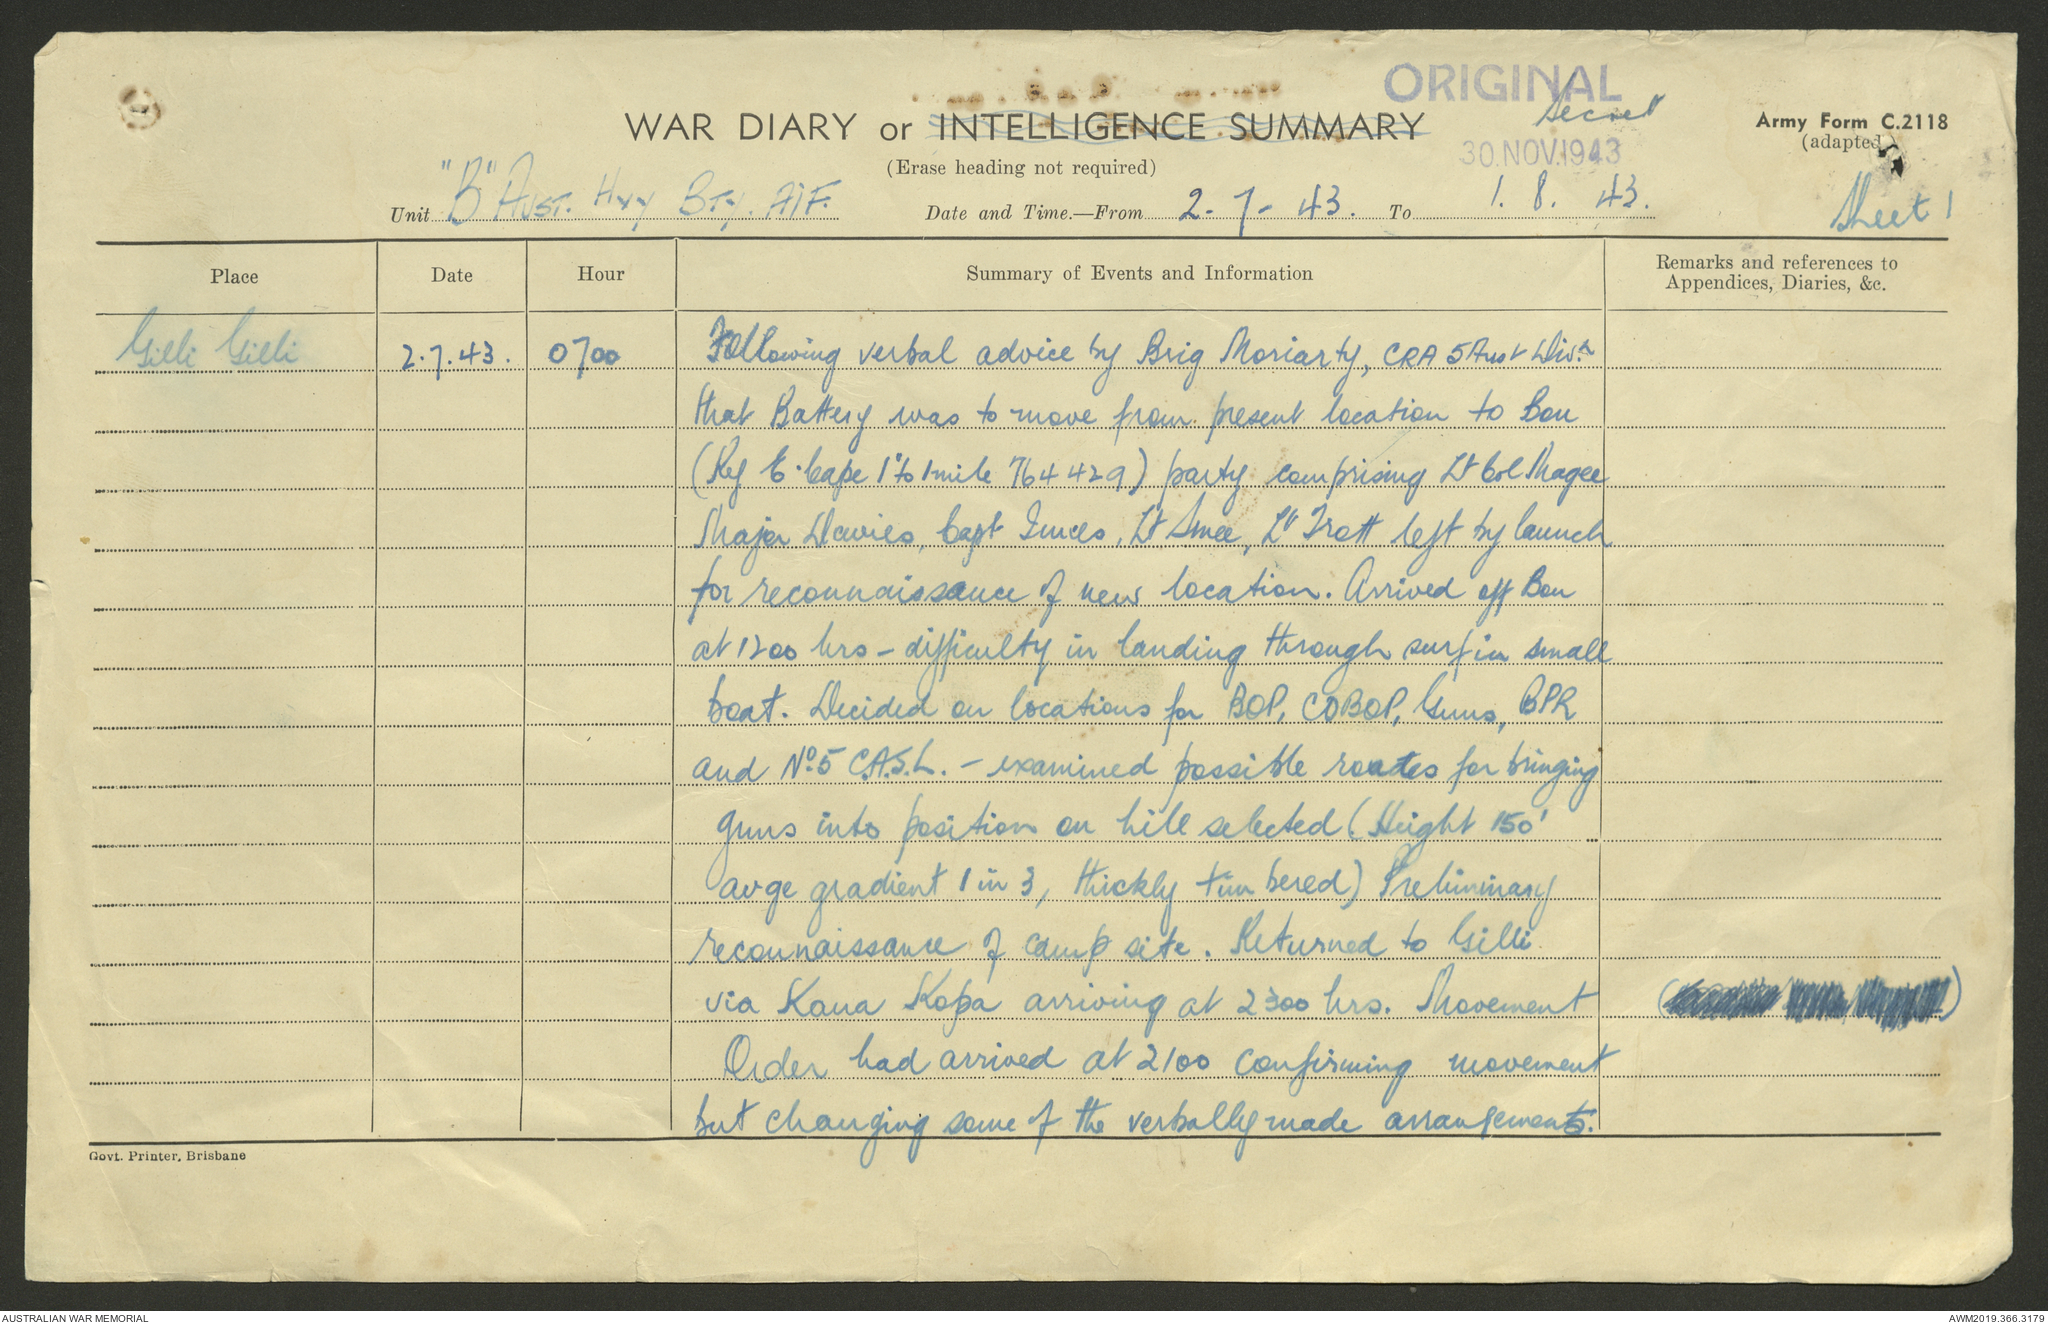 ORIGINAL
Secret
WAR DIARY or INTELLIGENCE SUMMARY
Army Form C.2118
(adapted)
(Erase heading not required)
30.NOV.1943
Unit "B" AUST. Hvy BTY. AIF. Date and Time.—From 2-7-43. To 1. 8. 43.
Sheet 1
Place Date Hour Summary of Events and Information Remarks and references to
Appendices, Diaries, &c.
Gilli Gilli 2.7.43. 0700 Following verbal advice by Brig Moriarty, CRA 5 Aust Div.n
that Battery was to move from present location to Bou
(Ref E. Cape 1" to 1 mile 764429) party comprising Lt Col Magee
Major Davies, Capt Innes, Lt Smee, Lt Trott left by launch
for reconnaissance of new location. Arrived off Bou
at 1200 hrs - difficulty in landing through surf in small
boat. Decided on locations for BOP, COBOP, Guns, BPR
and No. 5 C.A.S.L. - examined possible routes for bringing
guns into position on hill selected (Height 150'
avge gradient 1 in 3, thickly timbered) Preliminary
reconnaissance of camp site. Returned to Gilli
via Kana Kopa arriving at 2300 hrs. Movement
Order had arrived at 2100 confirming movement
but changing some of the verbally made arrangements.
Govt. Printer, Brisbane
AUSTRALIAN WAR MEMORIAL
AWM2019.366.3179